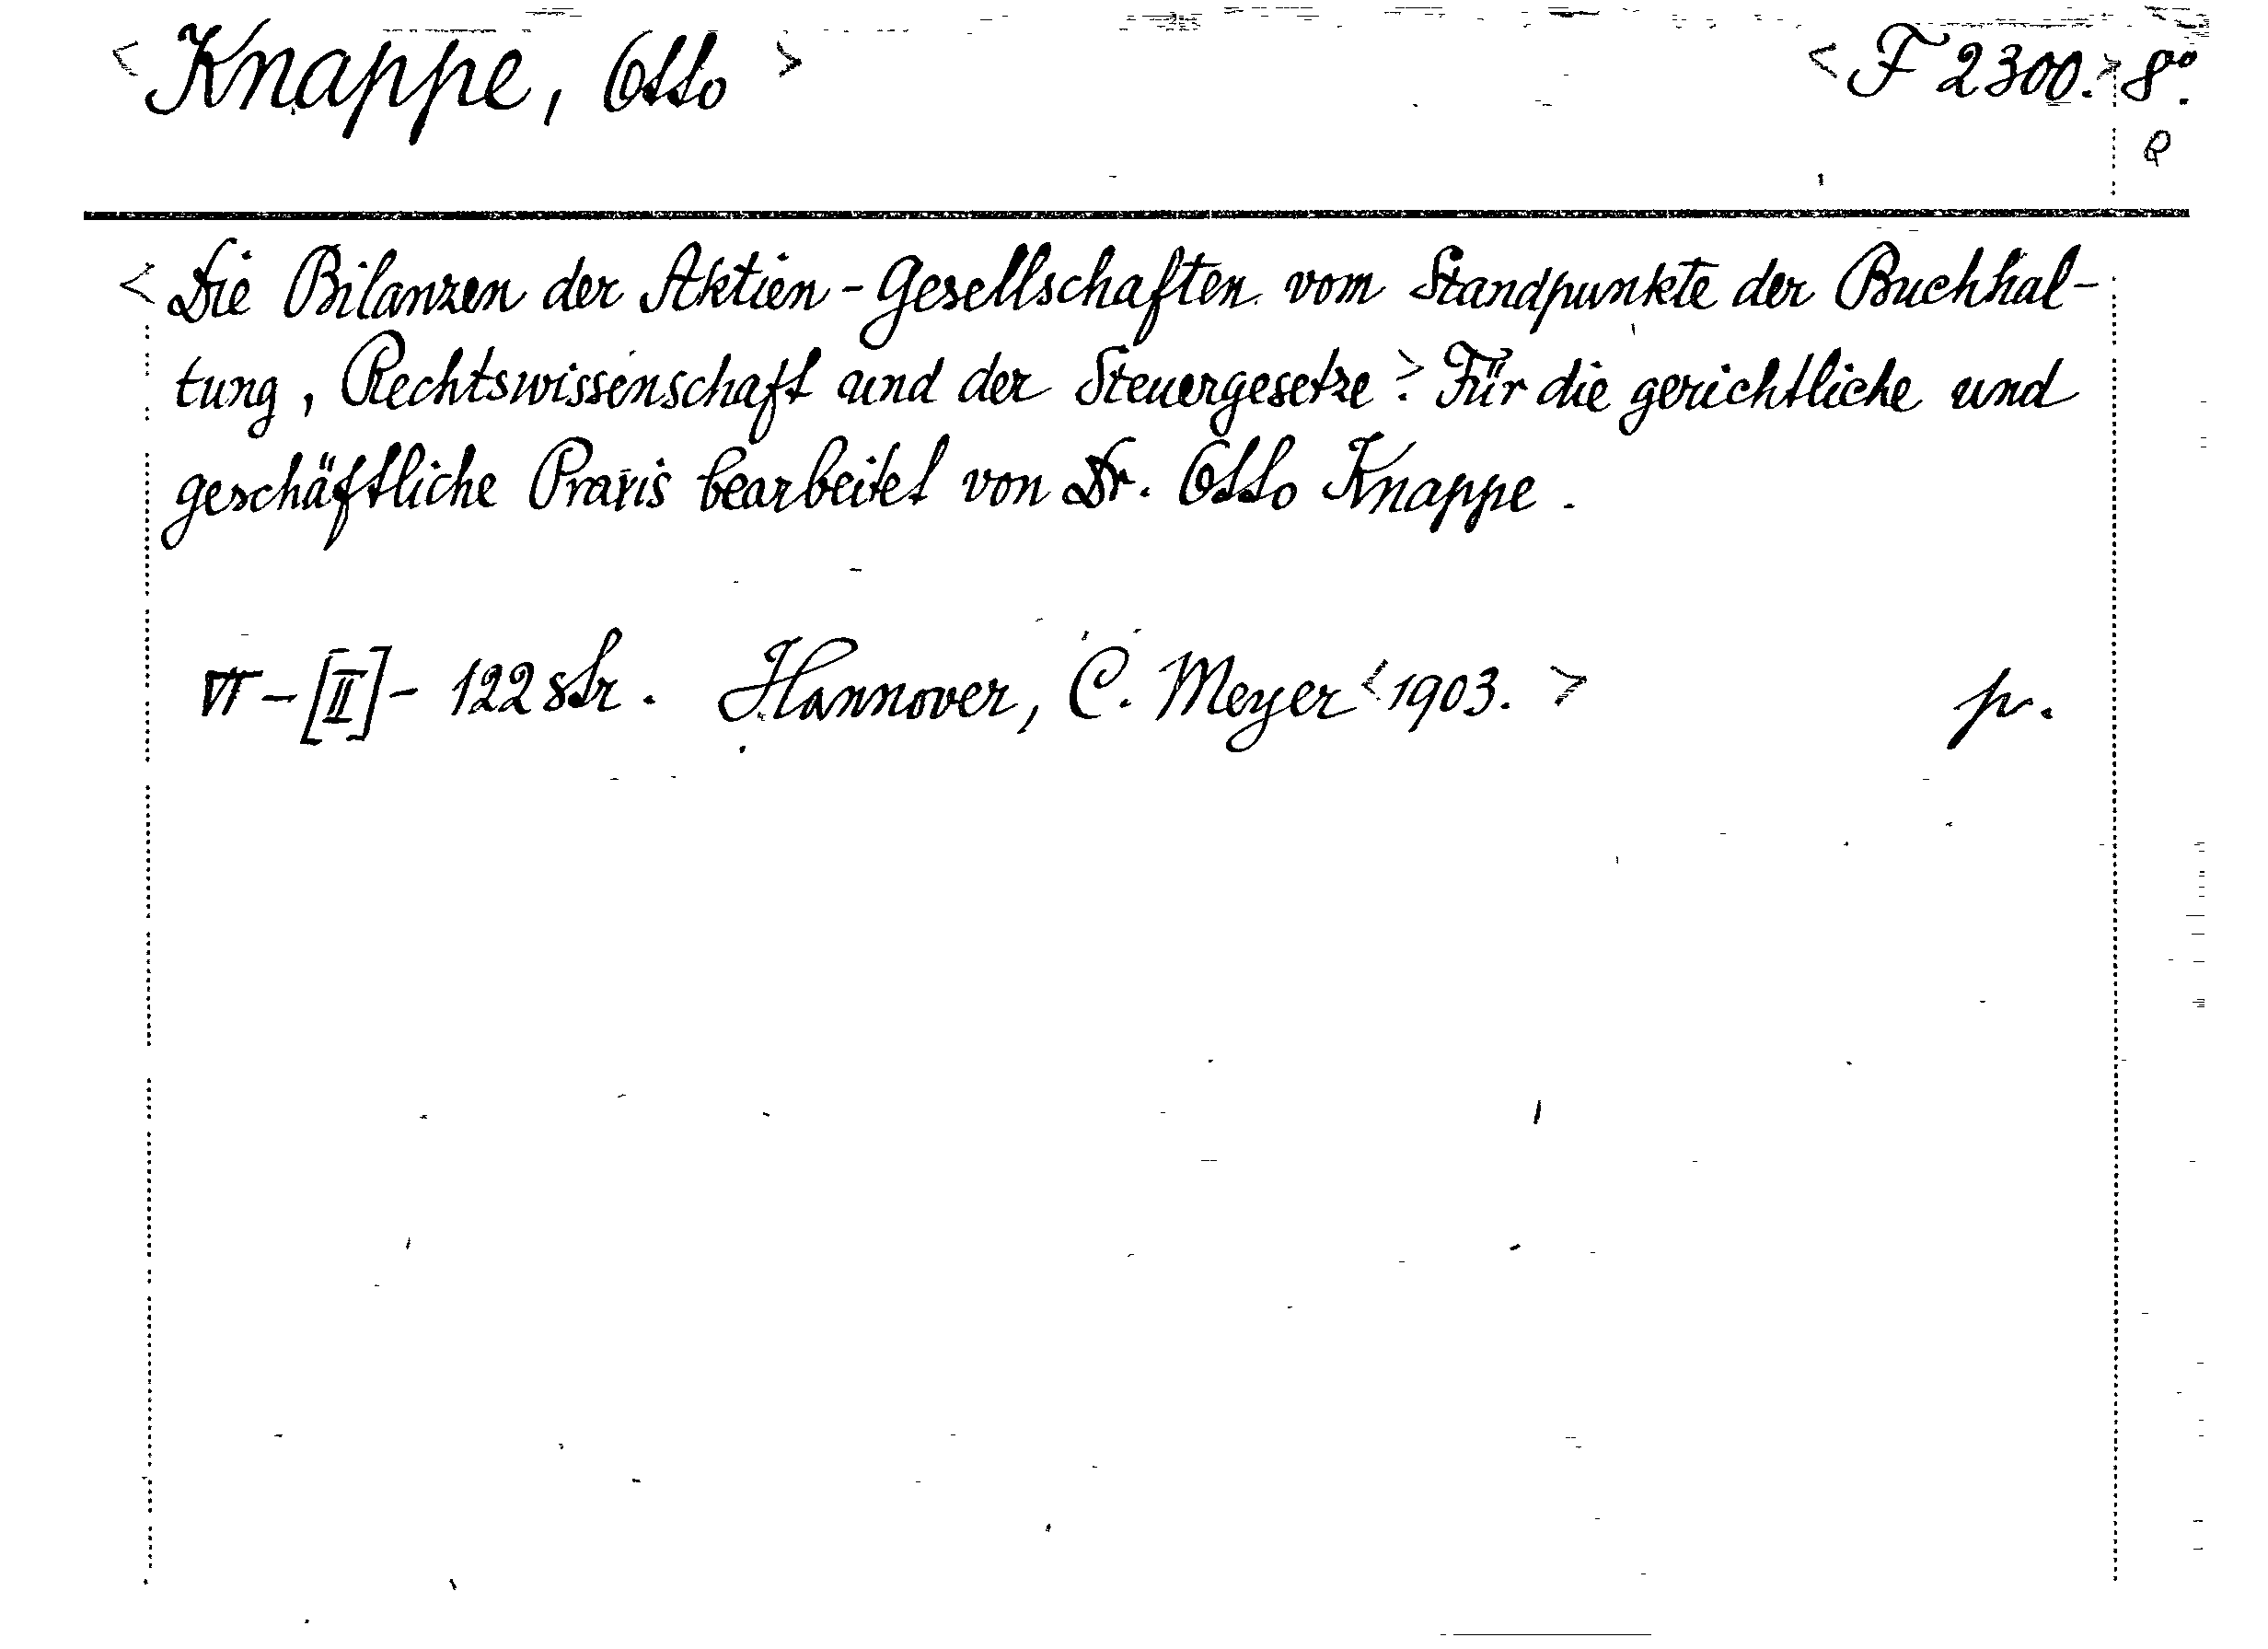 <Knappe, Otto> <F 2300.> 8º.
R
<Die Bilanzen der Aktien-Gesellschaften vom Standpunkte der Buchhal-
tung, Rechtswissenschaft und der Steuergesetze>. Für die gerichtliche und
geschäftliche Praxis bearbeitet von Dr. Otto Knappe.
VI-[II]- 122 str. Hannover, C. Meyer <1903.> pr.